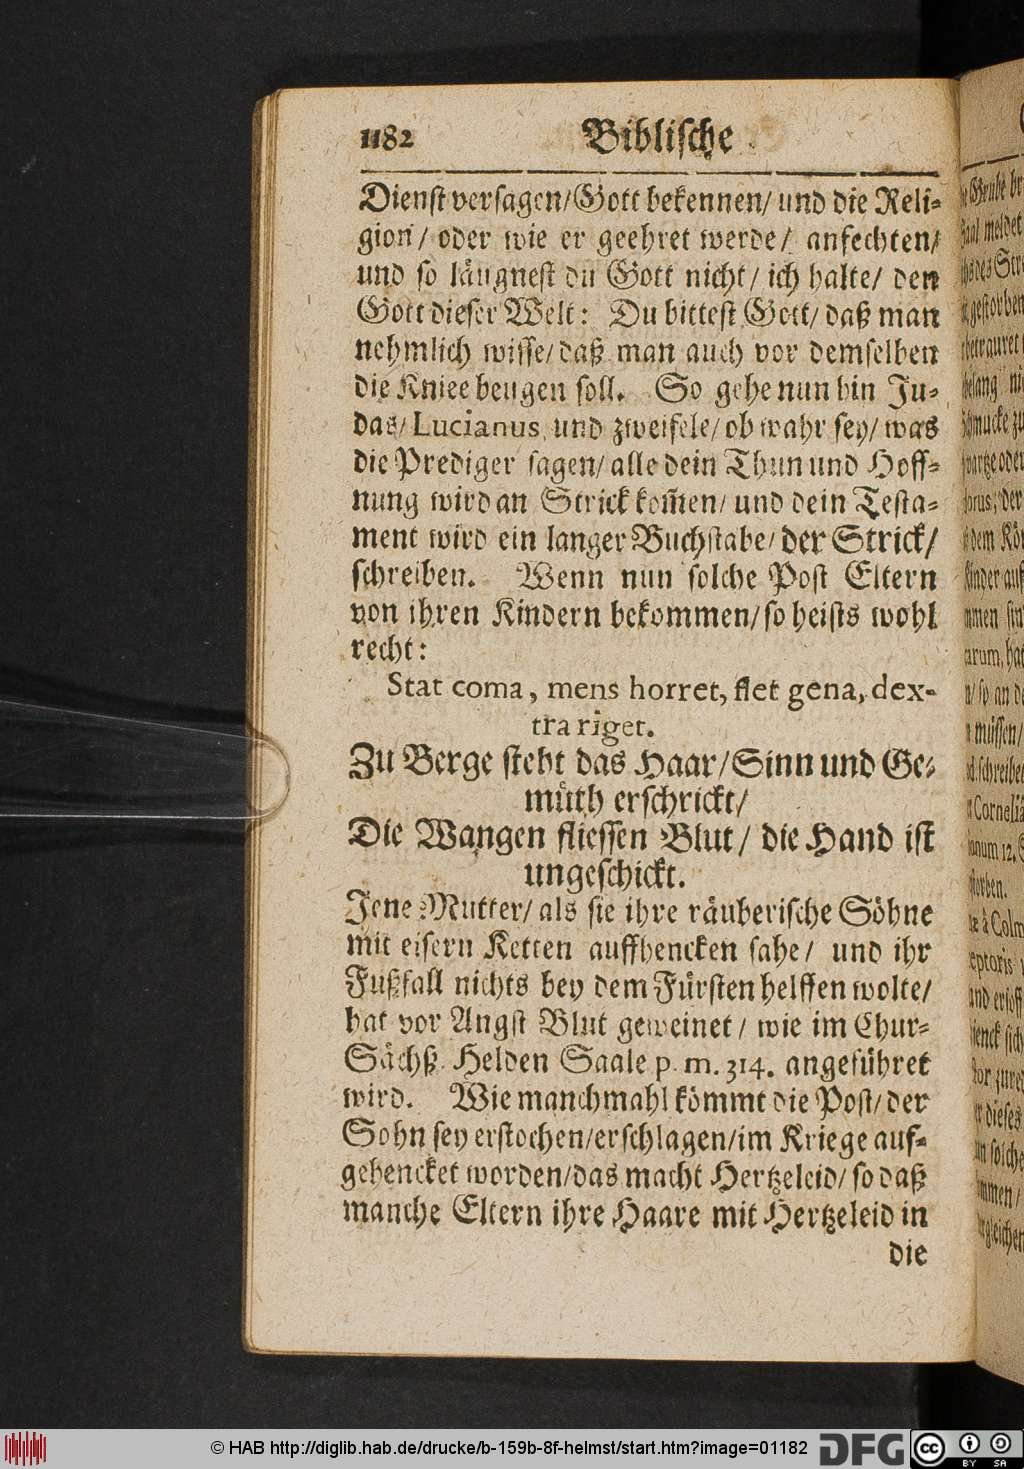 1182 Biblische
Dienst versagen/Gott bekennen/ und die Reli-
gion/ oder wie er geehret werde/ anfechten/
und so läugnest du Gott nicht/ ich halte/ den
Gott dieser Welt: Du bittest Gott/ daß man
nehmlich wisse/ daß man auch vor demselben
die Kniee beugen soll. So gehe nun hin Ju-
das/ Lucianus, und zweifele/ ob wahr sey/ was
die Prediger sagen/ alle dein Thun und Hoff-
nung wird an Strick kom̃en/ und dein Testa-
ment wird ein langer Buchstabe/ der Strick/
schreiben. Wenn nun solche Post Eltern
von ihren Kindern bekommen/ so heists wohl
recht:
Stat coma, mens horret, flet gena, dex-
tra riget.
Zu Berge steht das Haar/ Sinn und Ge-
müth erschrickt/
Die Wangen fliessen Blut/ die Hand ist
ungeschickt.
Jene Mutter/ als sie ihre räuberische Söhne
mit eisern Ketten auffhencken sahe/ und ihr
Fußfall nichts bey dem Fürsten helffen wolte/
hat vor Angst Blut geweinet/ wie im Chur-
Sächß. Helden Saale p. m. 314. angeführet
wird. Wie manchmahl kömmt die Post/ der
Sohn sey erstochen/erschlagen/im Kriege auf-
gehencket worden/das macht Hertzeleid/ so daß
manche Eltern ihre Haare mit Hertzeleid in
die
© HAB http://diglib.hab.de/drucke/b-159b-8f-helmst/start.htm?image=01182
DFG
cc BY SA